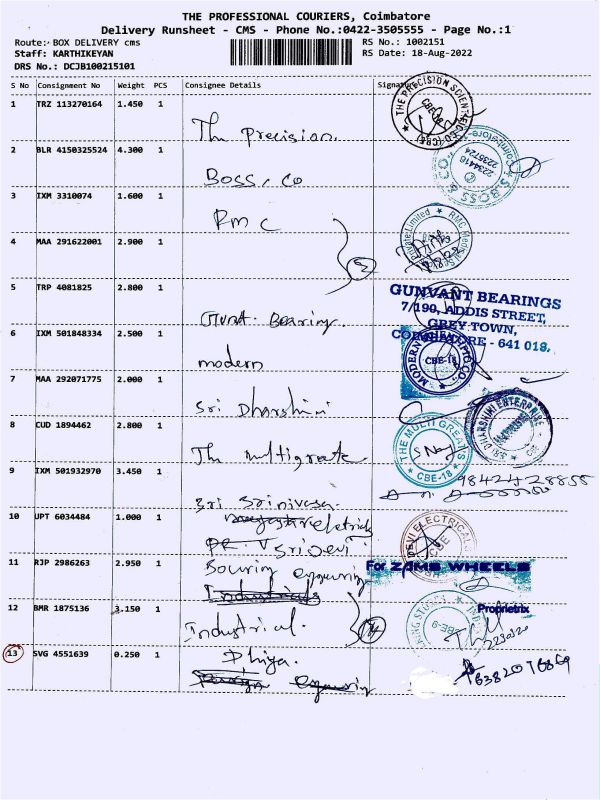 THE PROFESSIONAL COURIERS, Coimbatore
Delivery Runsheet - CMS - Phone No.:0422-3505555 - Page No.:1
Route: BOX DELIVERY cms
RS No.: 1002151
Staff: KARTHIKEYAN
RS Date: 18-Aug-2022
DRS No.: DCJB100215101
S No Consignment No Weight PCS Consignee Details Signature
1 TRZ 113270164 1.450 1
The Precision
THE PRECISION SCIENTIFIC CO (CBE)
CBE-18
2 BLR 4150325524 4.300 1
Boss & Co
S.BOSS & CO
Coimbatore
2234416
2235724
3 IXM 3310074 1.600 1
RMC
RMC Medical
Private Limited
4 MAA 291622001 2.900 1
2
5 TRP 4081825 2.800 1
Gunt. Bearing.
GUNVANT BEARINGS
7/190, ADDIS STREET,
GREY TOWN,
COIMBATORE - 641 018.
6 IXM 501848334 2.500 1
modern
MODERN
CBE-18
7 MAA 292071775 2.000 1
Sri Dharshini
SRI DHARSHINI ENTERPRISE
8 CUD 1894462 2.800 1
The Multigreats
THE MULTI GREATS
CBE-18
9 IXM 501932970 3.450 1
Sri Srinivasa
9842428855
10 UPT 6034484 1.000 1
Sri Devi
DEVI ELECTRICAL
CBE
11 RJP 2986263 2.950 1
For ZAMS WHEELS
Proprietrix
12 BMR 1875136 3.150 1
Industrial
CBE-9
13 SVG 4551639 0.250 1
Dhiya.